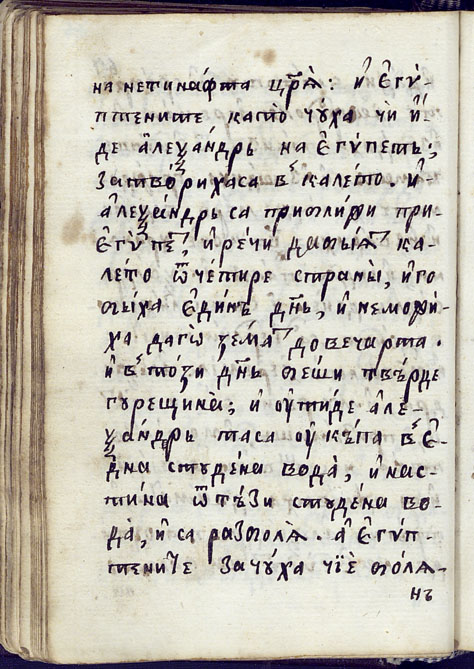 на нетинафта цр҃ѧ̀: и҆ є҆гѵ́-
птените като̀ чꙋ́ха чѝ и҆́-
де а҆леѯа́ндръ на є҆гѵ́петъ;
затво́рихаса в̾ кале́то. и҆
а҆леѯа́ндръ са прибли́жи при
є҆гѵ́пеⷮ, и҆ ре́чи да бы́аⷮ ка-
ле́то ѿ че́тире страны̀, и҆ го
бы́ха є҆ди́нъ дн҃ь, и҆ неможи́-
ха даго̀ зе́маⷮ до ве́чарта.
и҆ в̾ то́зи дн҃ь бе́ши твъ́рде
гурещина̀; и҆ ѻу҆ти́де а҆ле-
ѯа́ндръ таса ѻу҆кѫ́па в̾ є҆-
дна̀ студе́на вода̀; и҆ нас-
ти́на ѿ тъ́зи студе́на во-
да̀, и҆ са разболѧ̀. а҆ є҆гѵ́п-
тените зачꙋ́ха чїѐ бо́лѧ-
нъ